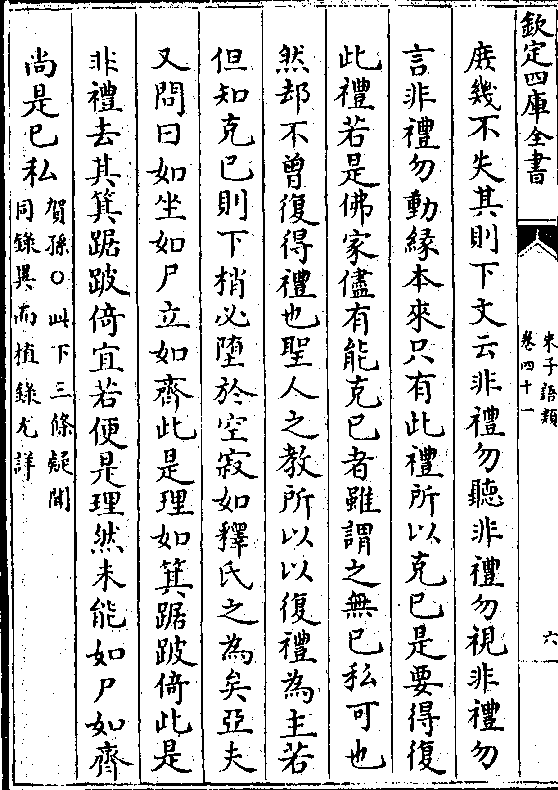 欽定四庫全書
朱子語類
卷四十一
六
庶幾不失其則下文云非禮勿聽非禮勿視非禮勿
言非禮勿動縁本來只有此禮所以克已是要得復
此禮若是佛家儘有能克已者雖謂之無已私可也
然却不曾復得禮也聖人之教所以以復禮為主若
但知克已則下梢必墮於空寂如釋氏之為矣亞夫
又問曰如坐如尸立如齊此是理如箕踞跛倚此是
非禮去其箕踞跛倚宜若便是理然未能如尸如齊
尚是已私
賀孫○此下三條疑聞
同錄異而植錄尤詳